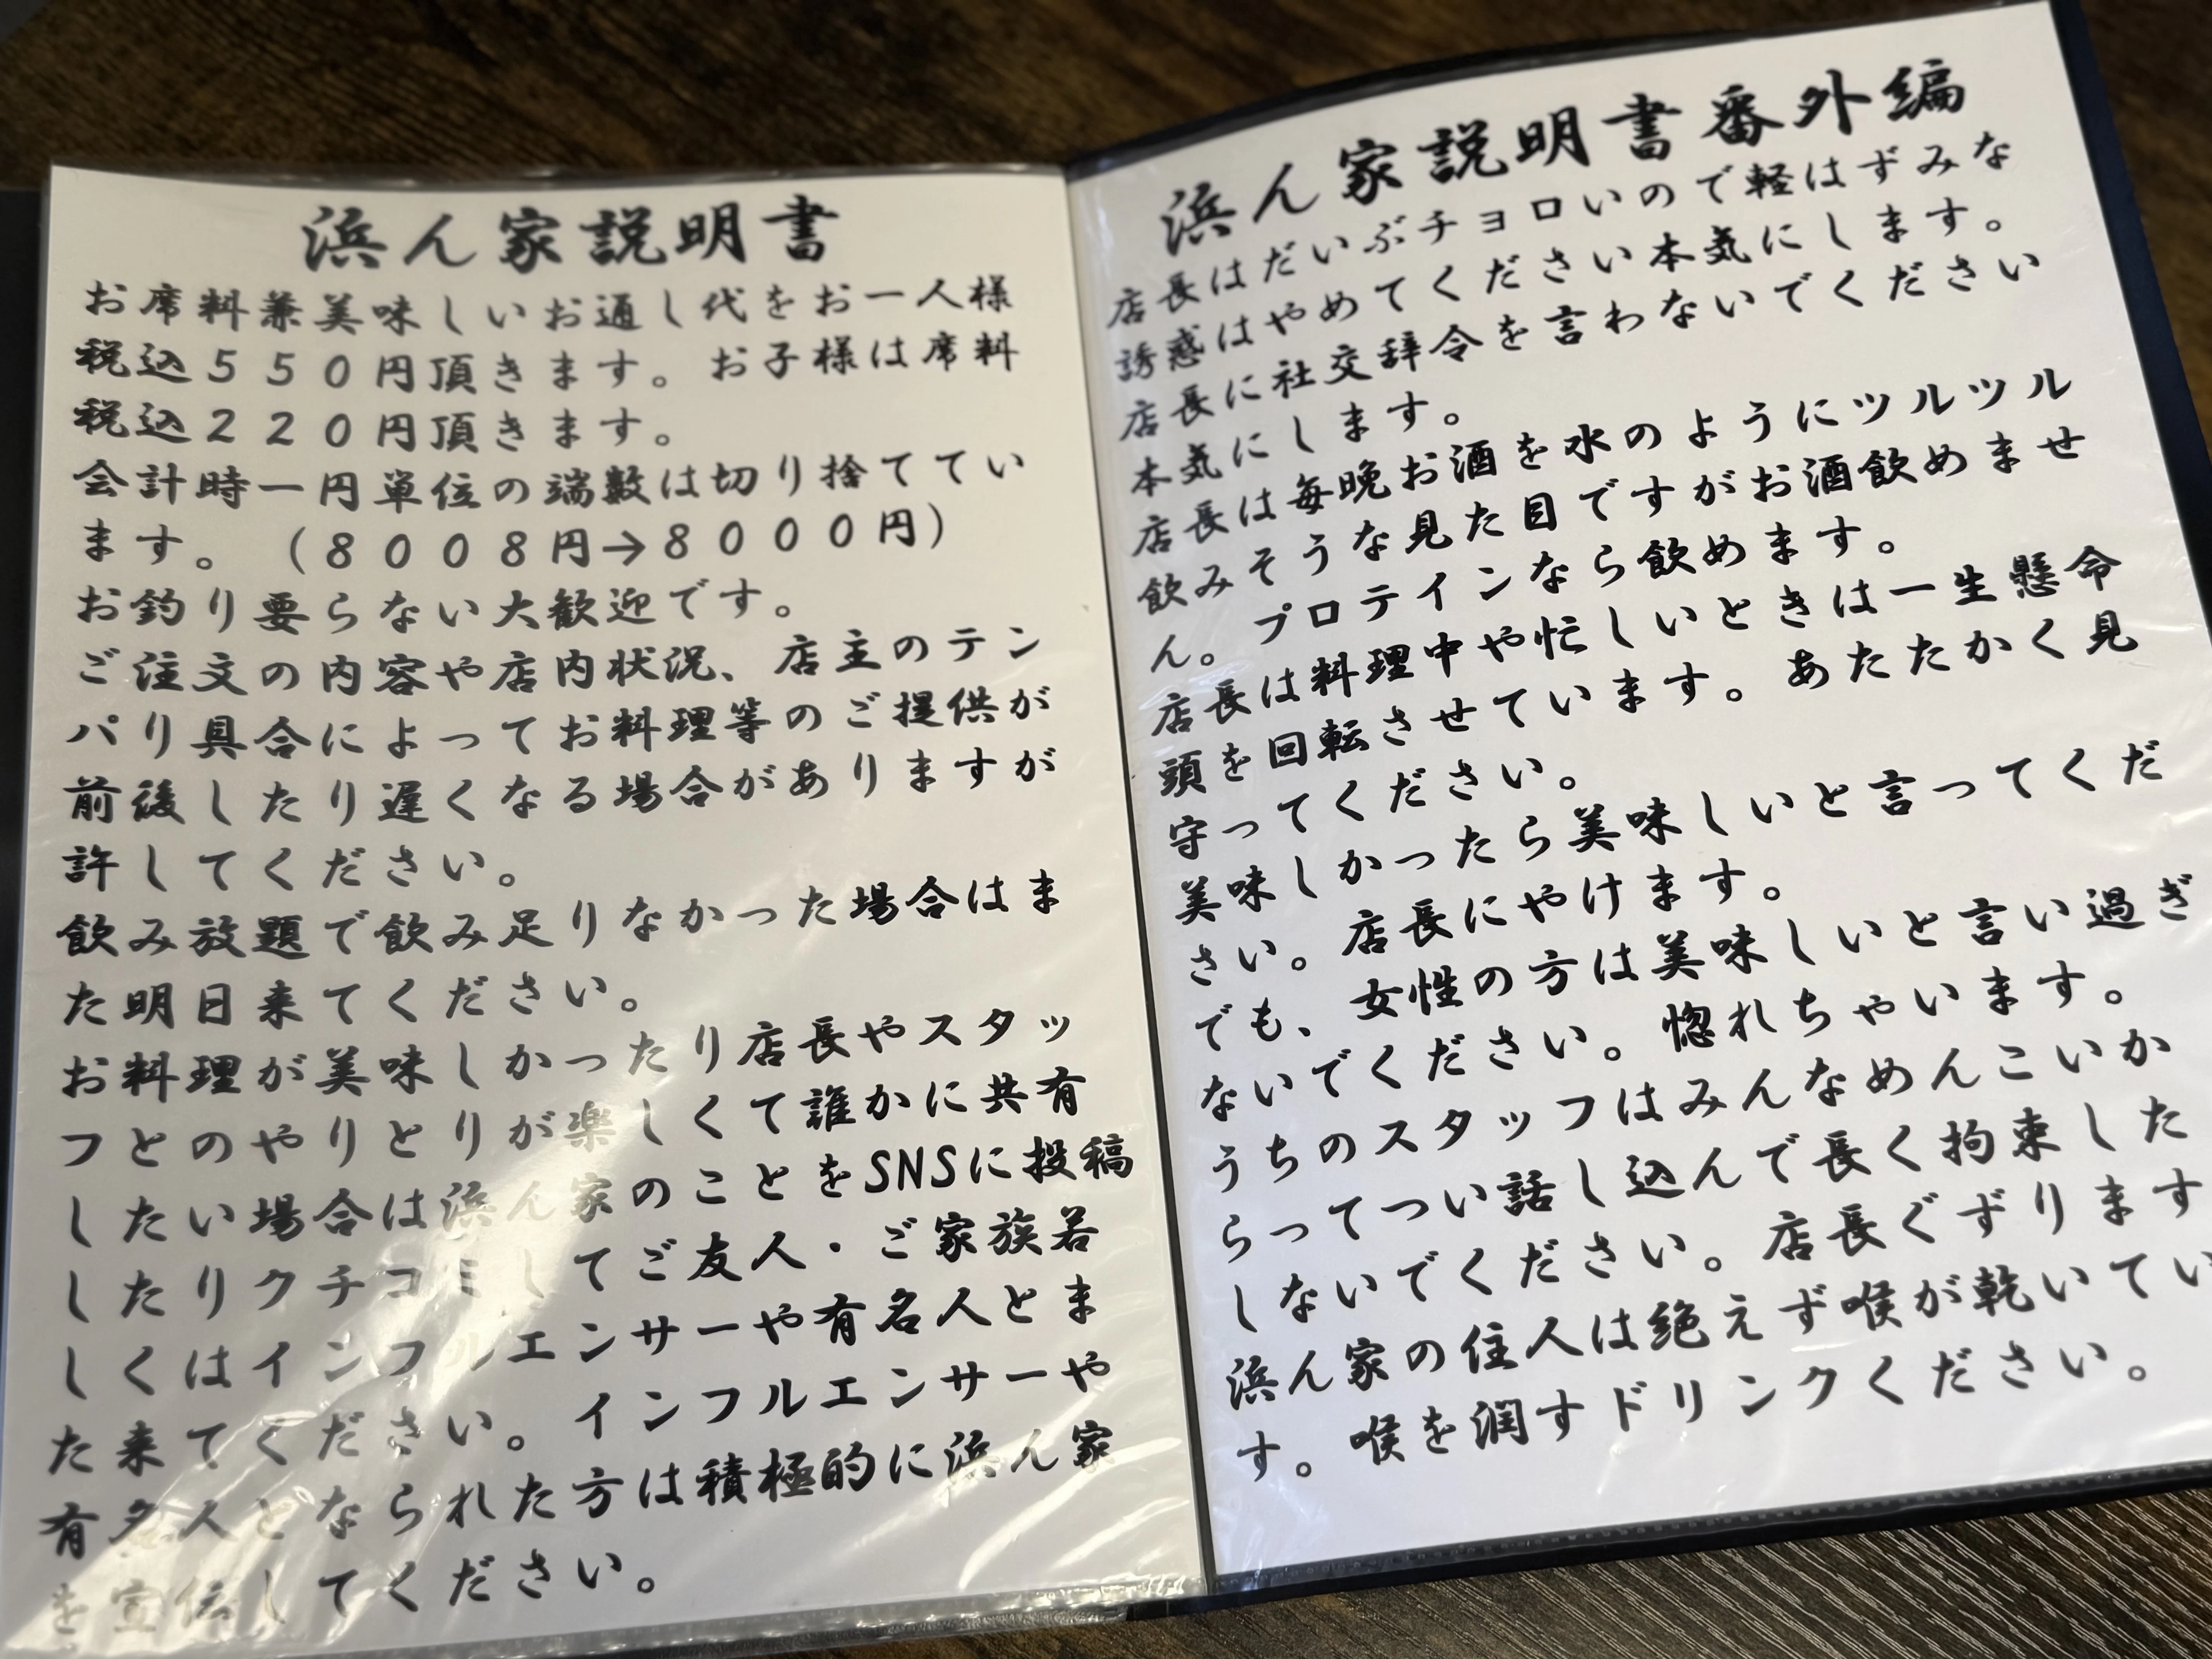 浜ん家説明書
お席料兼美味しいお通し代をお一人様
税込550円頂きます。お子様は席料
税込220円頂きます。
会計時一円単位の端数は切り捨ててい
ます。(8008円→8000円)
お釣り要らない大歓迎です。
ご注文の内容や店内状況、店主のテン
パり具合によってお料理等のご提供が
前後したり遅くなる場合がありますが
許してください。
飲み放題で飲み足りなかった場合はま
た明日来てください。
お料理が美味しかったり店長やスタッ
フとのやりとりが楽しくて誰かに共有
したい場合は浜ん家のことをSNSに投稿
したりクチコミしてご友人・ご家族若
しくはインフルエンサーや有名人とま
た来てください。インフルエンサーや
有名人となられた方は積極的に浜ん家
を宣伝してください。
浜ん家説明書番外編
店長はだいぶチョロいので軽はずみな
誘惑はやめてください本気にします。
店長に社交辞令を言わないでください
本気にします。
店長は毎晩お酒を水のようにツルツル
飲みそうな見た目ですがお酒飲めませ
ん。プロテインなら飲めます。
店長は料理中や忙しいときは一生懸命
頭を回転させています。あたたかく見
守ってください。
美味しかったら美味しいと言ってくだ
さい。店長にやけます。
でも、女性の方は美味しいと言い過ぎ
ないでください。惚れちゃいます。
うちのスタッフはみんなめんこいか
らってつい話し込んで長く拘束した
しないでください。店長ぐずります
浜ん家の住人は絶えず喉が乾いてい
す。喉を潤すドリンクください。